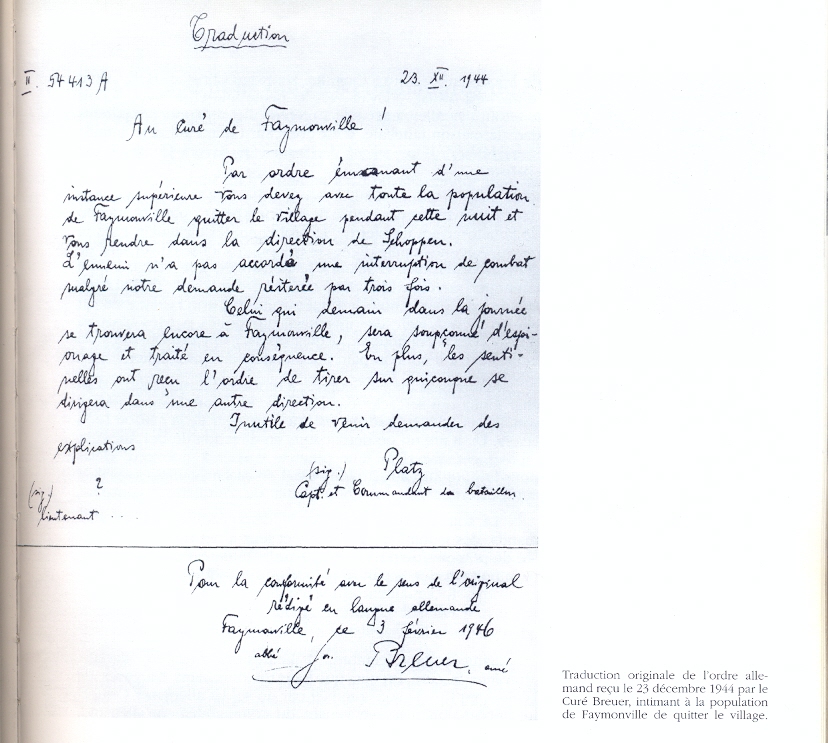 Traduction
II. 54413 A 23. XII. 1944
Au Curé de Faymonville !
Par ordre émanant d'une
instance supérieure vous devez avec toute la population
de Faymonville quitter le village pendant cette nuit et
vous rendre dans la direction de Schoppen.
L'ennemi n'a pas accordé une interruption de combat
malgré notre demande réiterée par trois fois.
Celui qui demain dans la journée
se trouvera encore à Faymonville, sera soupçonné d'espi-
onage et traité en conséquence. En plus, les senti-
nelles ont reçu l'ordre de tirer sur quiconque se
dirigera dans une autre direction.
Inutile de venir demander des
explications
(sig.) ? (sig.) Platz
lieutenant ... Capt. et Commandant du bataillon.
Pour la conformité avec le sens de l'original
rédigé en langue allemande
Faymonville, ce 3 février 1946
abbé Jos. Breuer, curé
Traduction originale de l'ordre alle-
mand reçu le 23 décembre 1944 par le
Curé Breuer, intimant à la population
de Faymonville de quitter le village.